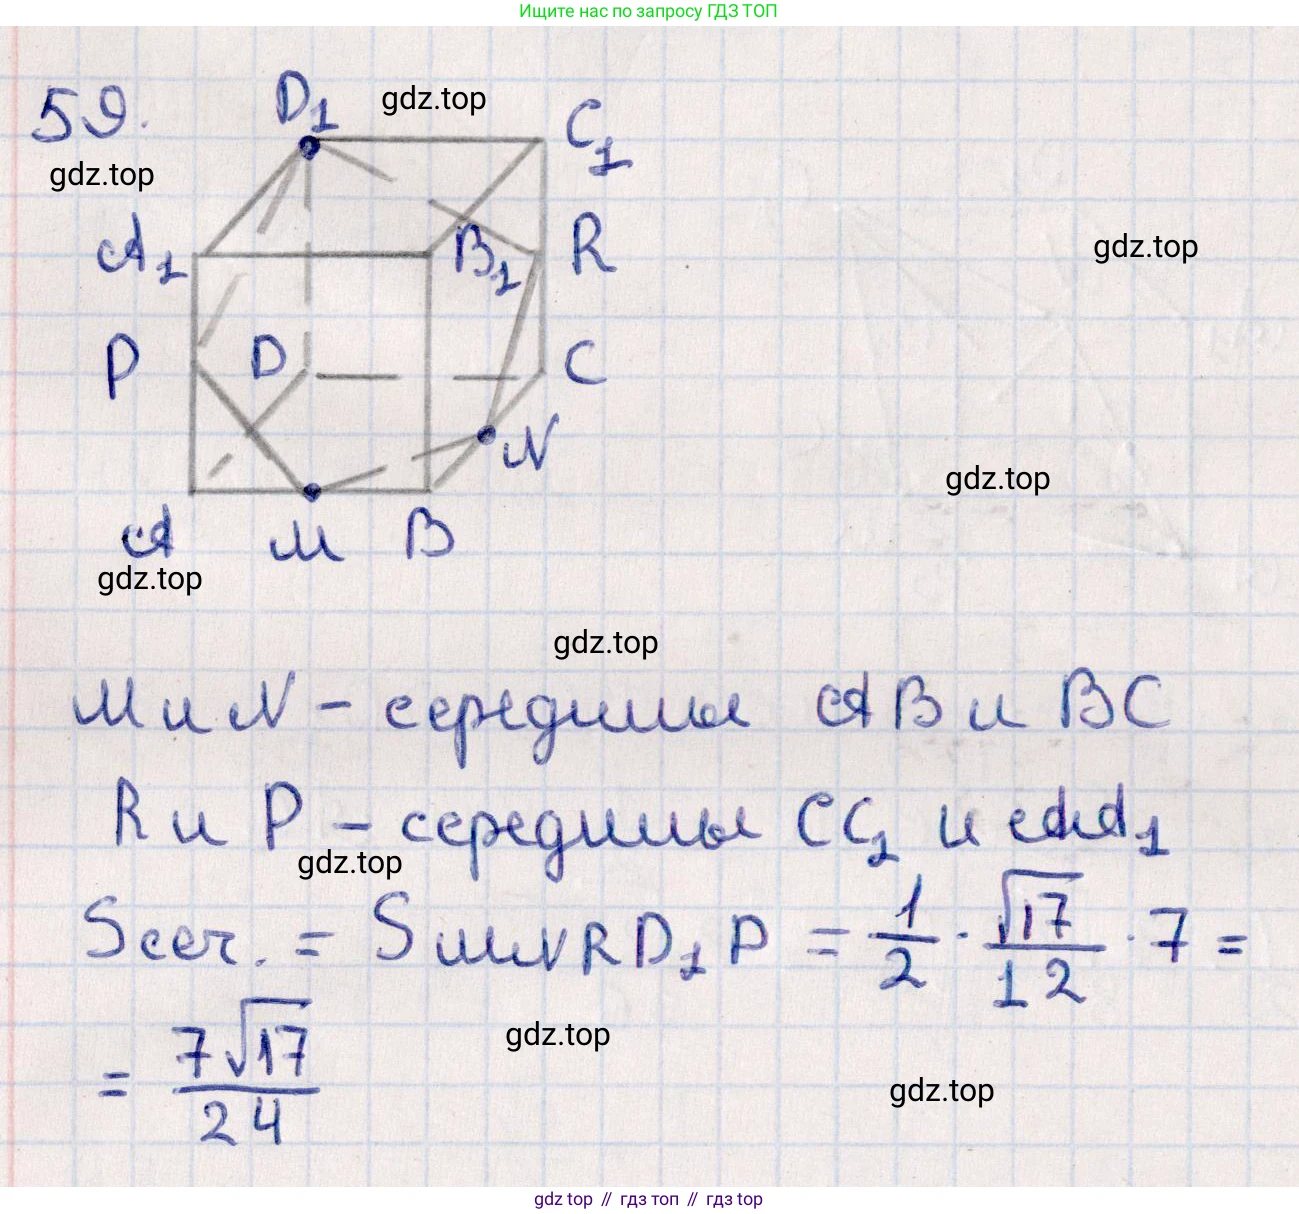 Ищите нас по запросу ГДЗ ТОП
59.
D₁
gdz.top
C₁
gdz.top
A₁
B₁
R
gdz.top
P
D
C
N
gdz.top
A
M
B
gdz.top
gdz.top
M и N – середины AB и BC
R и P – середины CC₁ и AA₁
gdz.top
Sсеч. = SMNRD₁P = 1/2 · √17/12 · 7 =
= 7√17/24
gdz.top
gdz.top
gdz top // гдз топ // гдз top